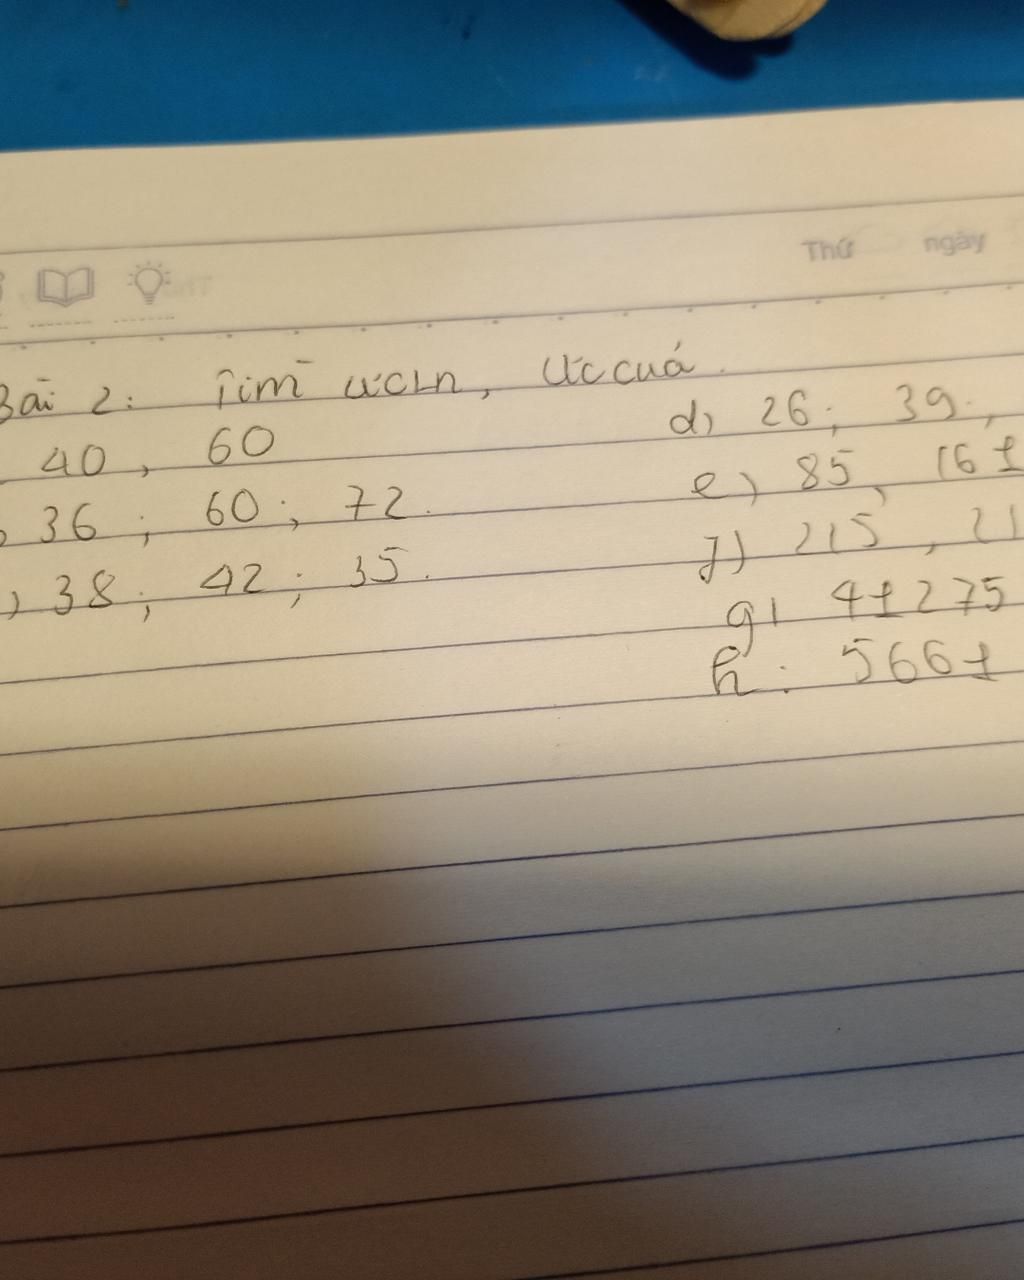 Thứ ngày
Bài 2: Tìm ƯCLN, ƯC của.
40, 60
36; 60; 72.
38; 42; 35.
d) 26; 39;
e) 85, 161
f) 215, 21
g) 41275
h. 5661